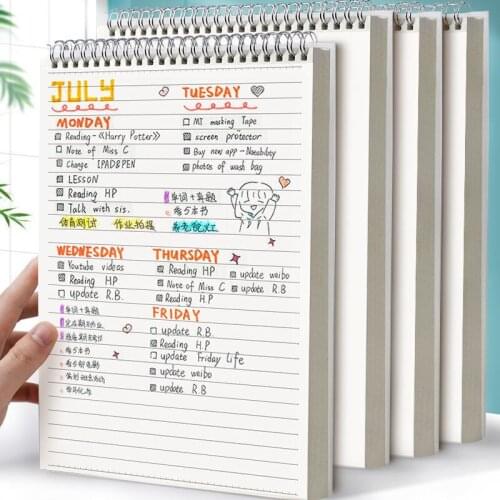 JULY
MONDAY
Reading-《Harry Potter》
Note of Miss C
Change IPAD&PEN
LESSON
Reading HP
Talk with sis.
体育测试 作业拍摄
TUESDAY
MI masking Tape
screen protector
Buy new app-Notability
photos of wash bag
单词+真题
看5本书
WEDNESDAY
Youtube videos
Reading HP
update R.B.
单词+真题
看5本书
THURSDAY
Reading HP
update weibo
Note of Miss C
update R.B
Reading H.P
FRIDAY
update R.B.
Reading H.P
update Friday Life
update weibo
update R.B